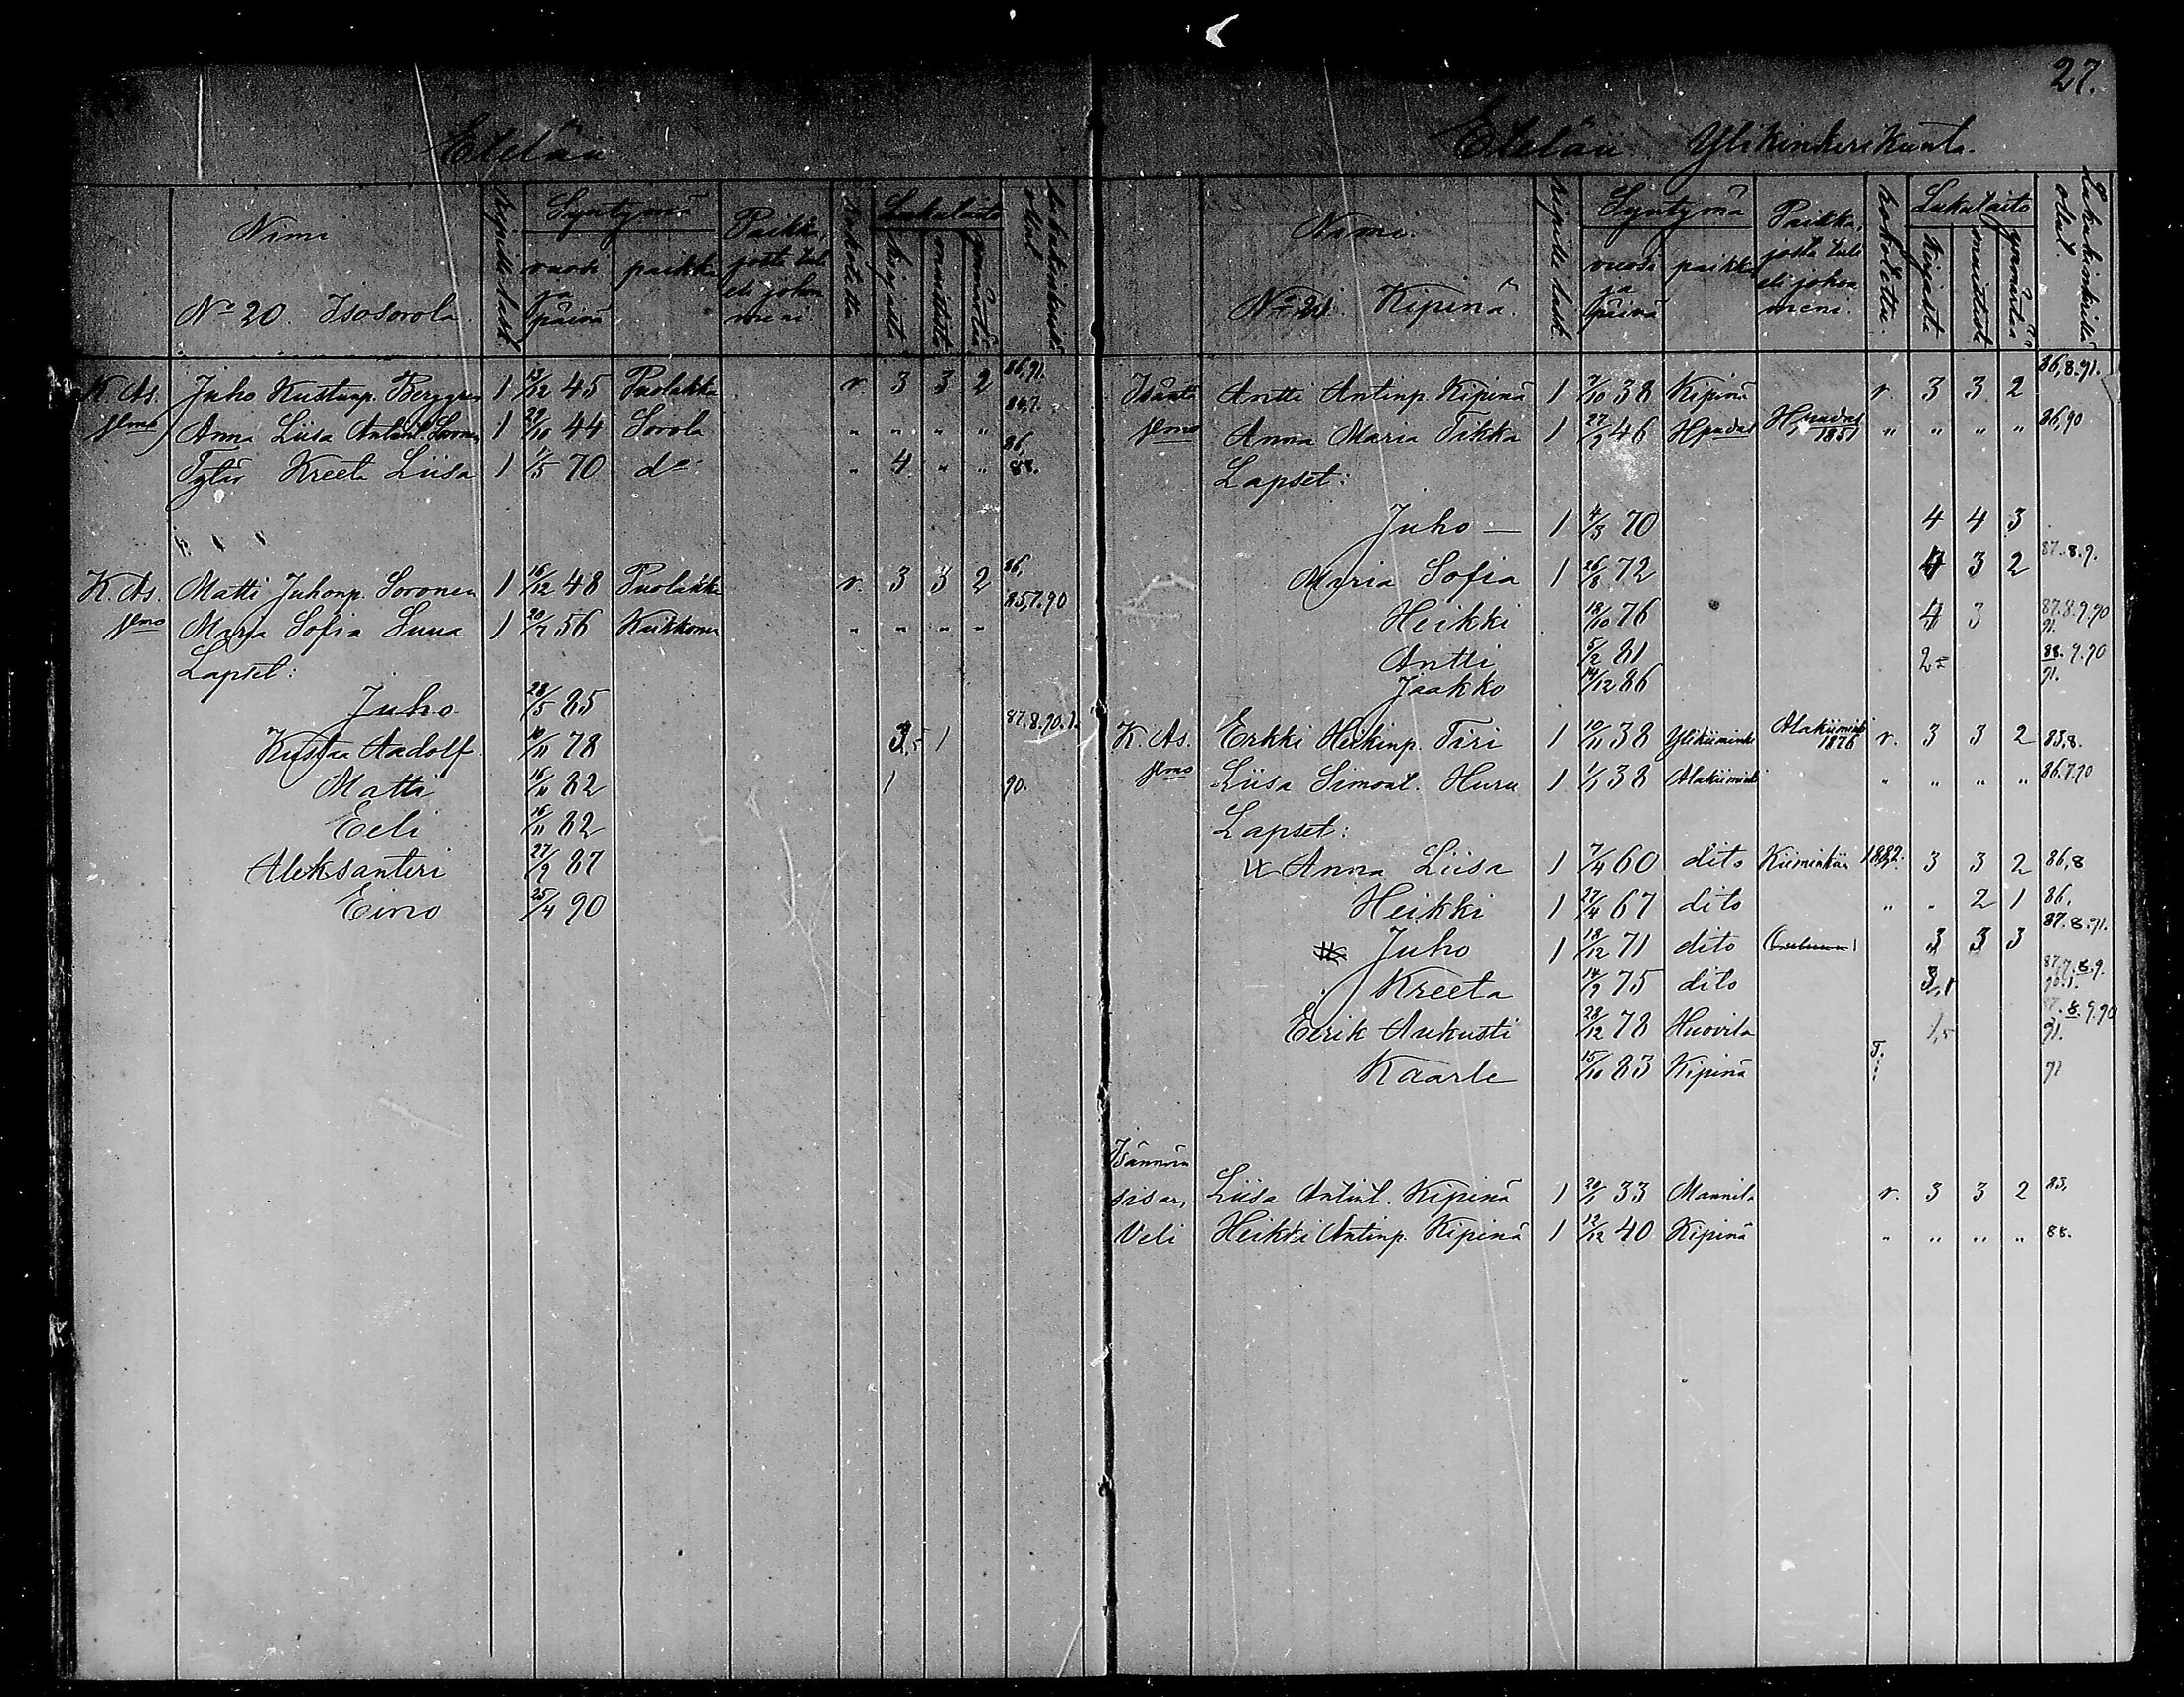 27.
Etelän
Nimi
No 20. Isosorola
Ripille lask.
Syntymä
vuosi ja päivä
paikka
Paikka, josta tuli eli johon meni
Rokotettu
Lukutaito
kirjasta
muistista
ymmärtää
K. As. Juho Kustaap. Berggren 1 13/12 45 Puolakka r. 3 3 2 86,91.
Wmo Anna Liisa Antint. Soronen 1 29/10 44 Sorola " " " " 86,7.
Tytär Kreeta Liisa 1 1/5 70 do " 4 " " 86, 88.
K. As. Matti Juhonp. Soronen 1 16/12 48 Puolakka r. 3 3 2 86,
Wmo Marja Sofia Suua 1 20/7 56 Kaikkonen " " " " 85,7.90
Lapset:
Juho 28/5 85
Kustaa Aadolf 10/11 78 3,5 1 87.8.90.1.
Matti 16/11 82 1 90.
Eeli 16/11 82
Aleksanteri 27/9 87
Eino 25/4 90
Etelän Ylikinkerikunta.
Nimi.
No 21. Kipinä.
Ripille lask.
Syntymä
vuosi ja päivä
paikka
Paikka, josta tuli eli johon meni.
Rokotettu.
Lukutaito
kirjasta
muistista
ymmärtää
Lukukinkerillä ollut.
Isäntä Antti Antinp. Kipinä 1 7/10 38 Kipinä r. 3 3 2 86,8.91.
Wmo Anna Maria Tikka 1 27/9 46 Hpudas Hpudas 1851 " " " " 86,90
Lapset:
Juho — 1 4/3 70 4 4 3
Maria Sofia 1 26/8 72 4 3 2 87.8.9.
Heikki 18/10 76 4 3 87.8.9.90 91.
Antti 5/2 81 2 88.9.90 91.
Jaakko 14/12 86
K. As. Erkki Heikinp. Tiri 1 10/11 38 Ylikiiminki Alakiiminki 1876 r. 3 3 2 83,8.
Wmo Liisa Simont. Huru 1 1/1 38 Alakiiminki " " " " 86.7.90
Lapset:
Anna Liisa 1 7/4 60 dito Kiiminkiin 1882. 3 3 2 86,8
Heikki 1 27/4 67 dito " " 2 1 86.
Juho 1 18/12 71 dito 3 3 3 87.8.91.
Kreeta 14/9 75 dito 3,1 87,7.8.9. 90.1.
Eerik Aukusti 28/12 78 Huovila 1,5 87.8.9.90 91.
Kaarle 15/10 83 Kipinä 91
Isännän
sisar, Liisa Antint. Kipinä 1 20/1 33 Mannila r. 3 3 2 83,
Veli Heikki Antinp. Kipinä 1 12/12 40 Kipinä " " " " 88.